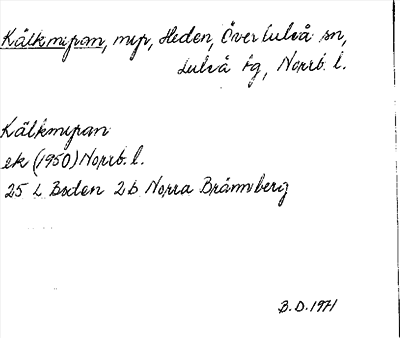 Kälkmyran, myr, Heden, Över Luleå sn,
Luleå tg, Norrb. l.
Kälkmyran
ek (1950) Norrb. l.
25 L Boden 2 b Norra Brännberg
B.D. 1971